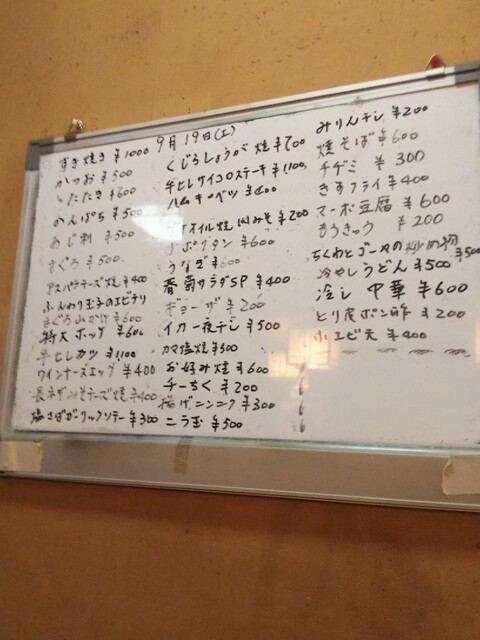 9月19日(土)
すき焼き ¥1000
かつお ¥500
〃たたき ¥600
かんぱち ¥500
あじ刺 ¥500
まぐろ ¥500
アスパラチーズ焼 ¥400
ふんわり玉子のエビチリ
まぐろ山かけ ¥600
特大ホッケ ¥600
牛ヒレカツ ¥1,100
ウインナーエッグ ¥400
長ネギみそチーズ焼 ¥400
塩さばガーリックソテー ¥300
くじらしょうが焼 ¥700
牛ヒレサイコロステーキ ¥1,100
ハムキャベツ ¥400
オイル焼 肉みそ ¥200
ナポリタン ¥600
うなぎ ¥600
香菊サラダSP ¥400
ギョーザ ¥200
イカ一夜干し ¥500
カマ塩焼 ¥500
お好み焼 ¥600
チーちく ¥200
揚げニンニク ¥300
ニラ玉 ¥500
みりん干し ¥200
焼そば ¥600
チヂミ ¥300
きすフライ ¥400
マーボ豆腐 ¥600
もろきゅう ¥200
ちくわとゴーヤの炒め物 ¥500
冷やしうどん ¥500
冷し中華 ¥600
とり皮ポン酢 ¥200
小エビ天 ¥400